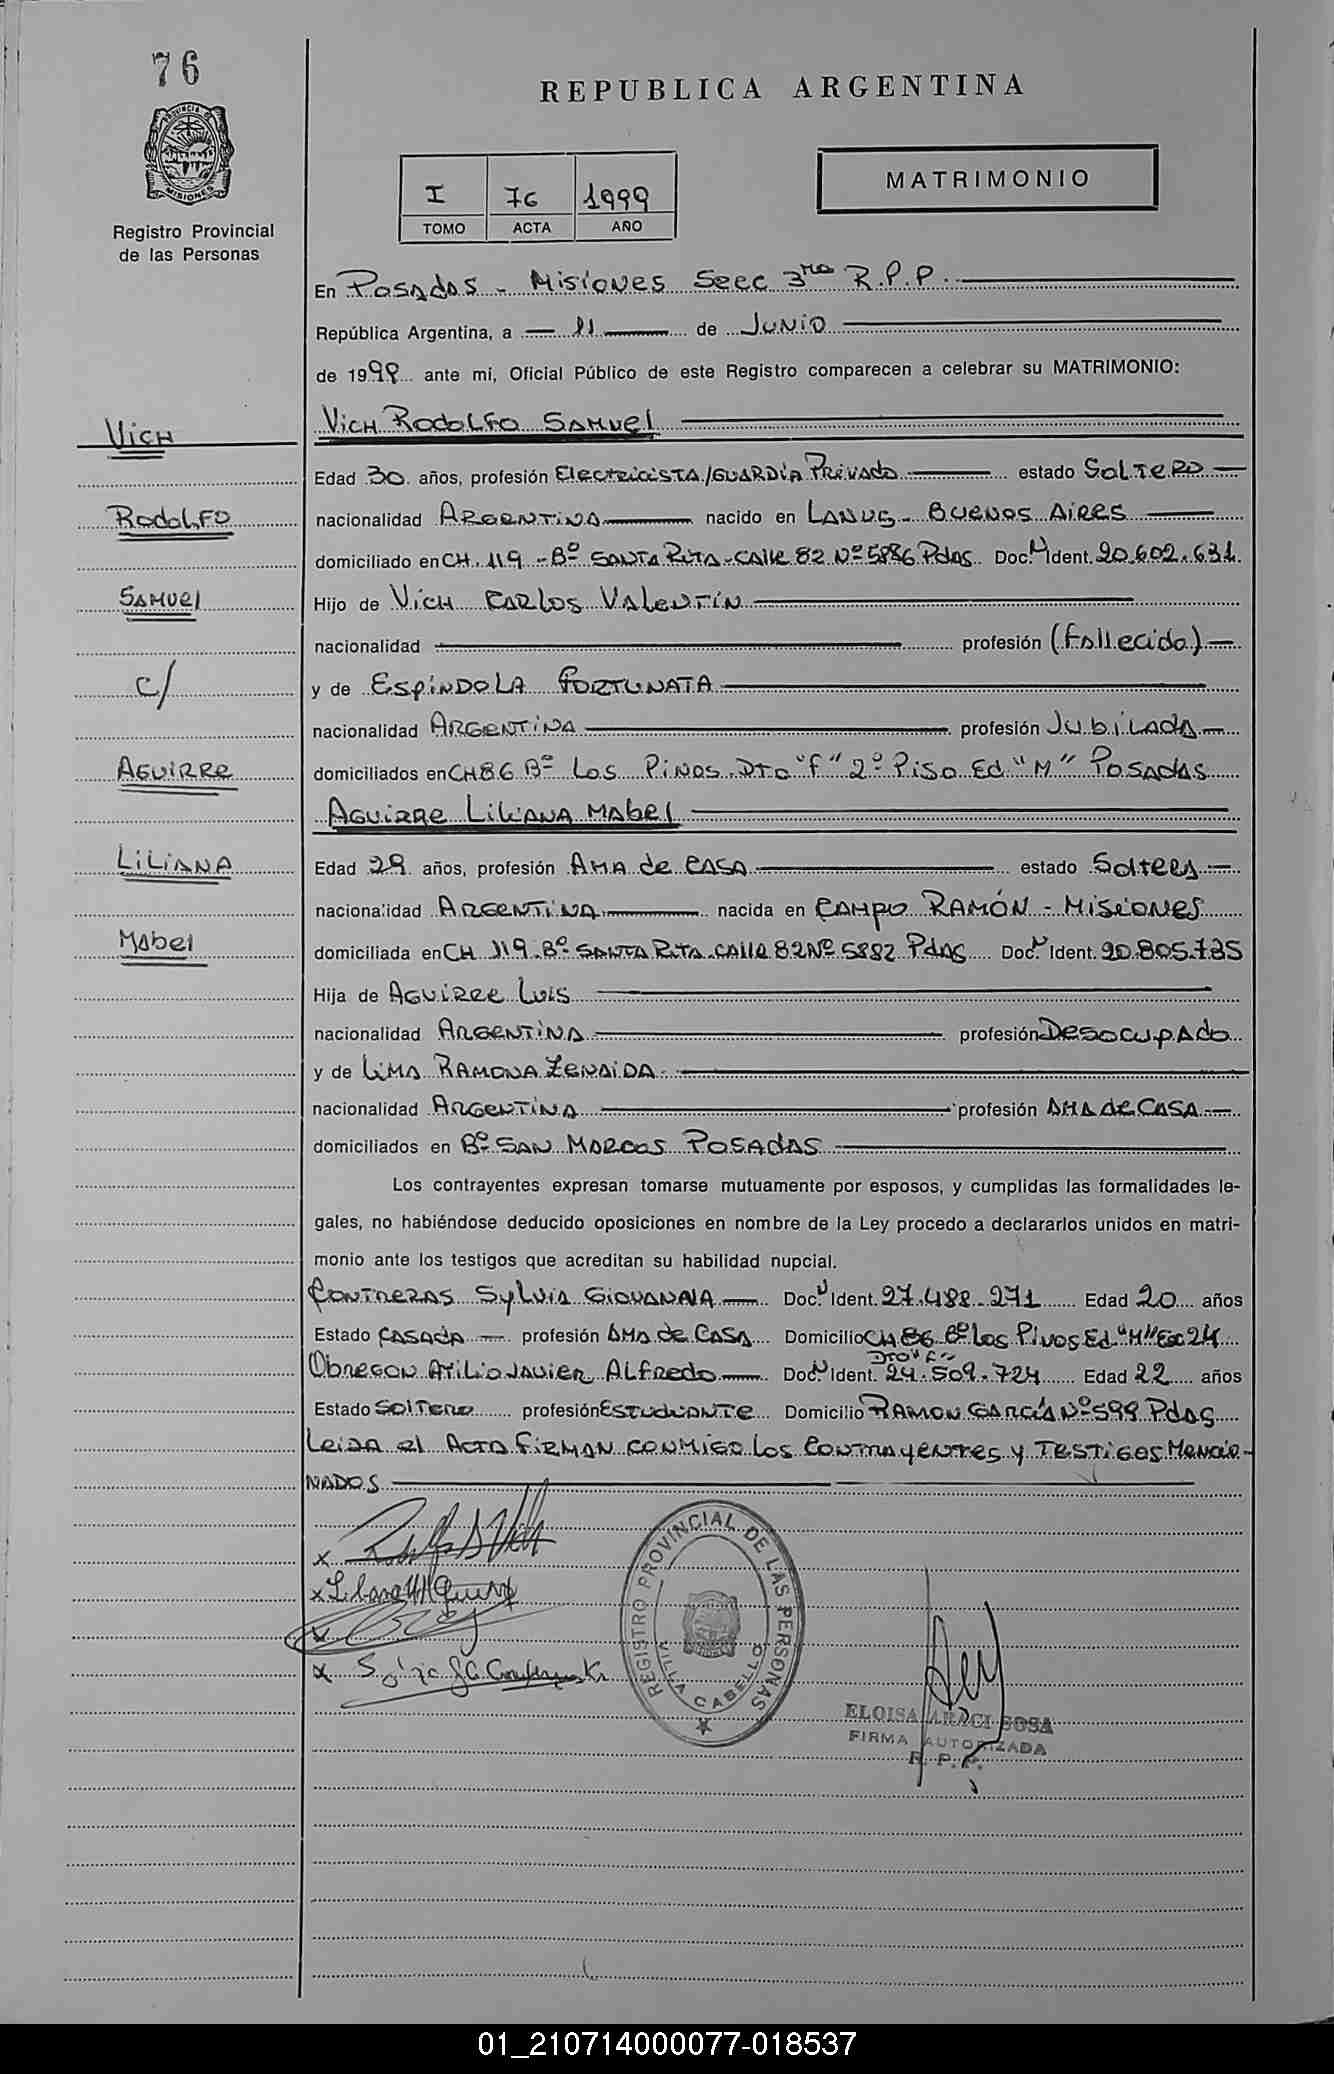 76
REPUBLICA ARGENTINA
PROVINCIA DE MISIONES
Registro Provincial
de las Personas
I 76 1999
TOMO ACTA AÑO
MATRIMONIO
En Posadas - Misiones Secc 3ra R.P.P.
República Argentina, a 11 de Junio
de 1999 ante mí, Oficial Público de este Registro comparecen a celebrar su MATRIMONIO:
Vich
Vich Rodolfo Samuel
Edad 30 años, profesión Electricista/Guardia Privado estado Soltero
Rodolfo
nacionalidad Argentina nacido en Lanus - Buenos Aires
domiciliado en CH. 119 - Bº Santa Rita - Calle 82 Nº 5886 Pdas. Doc. N Ident. 20.602.631.
Samuel
Hijo de Vich Carlos Valentin
nacionalidad profesión (Fallecido)
C/
y de Espindola Fortunata
nacionalidad Argentina profesión Jubilada
Aguirre
domiciliados en CH 86 Bº Los Pinos Dto "F" 2º Piso Ed "M" Posadas
Aguirre Liliana Mabel
Liliana
Edad 29 años, profesión Ama de Casa estado Soltera
nacionalidad Argentina nacida en Campo Ramón - Misiones
Mabel
domiciliada en CH 119 - Bº Santa Rita - Calle 82 Nº 5882 Pdas Doc. N Ident. 20.805.735
Hija de Aguirre Luis
nacionalidad Argentina profesión Desocupado
y de Lima Ramona Zenaida
nacionalidad Argentina profesión Ama de Casa
domiciliados en Bº San Marcos Posadas
Los contrayentes expresan tomarse mutuamente por esposos, y cumplidas las formalidades le-
gales, no habiéndose deducido oposiciones en nombre de la Ley procedo a declararlos unidos en matri-
monio ante los testigos que acreditan su habilidad nupcial.
Contreras Sylvia Giovanna Doc. N Ident. 27.488.271 Edad 20 años
Estado Casada profesión Ama de Casa Domicilio CH 86 Bº Los Pinos Ed. "M" Esc 24
Dto "F"
Obregon Atilio Javier Alfredo Doc. N Ident. 24.509.724 Edad 22 años
Estado Soltero profesión Estudiante Domicilio Ramon García Nº 599 Pdas
Leida el Acta firman conmigo los contrayentes y testigos mencio-
nados
REGISTRO PROVINCIAL DE LAS PERSONAS
VILLA CABELLO
ELOISA ARACI SOSA
FIRMA AUTORIZADA
R. P. P.
01_210714000077-018537